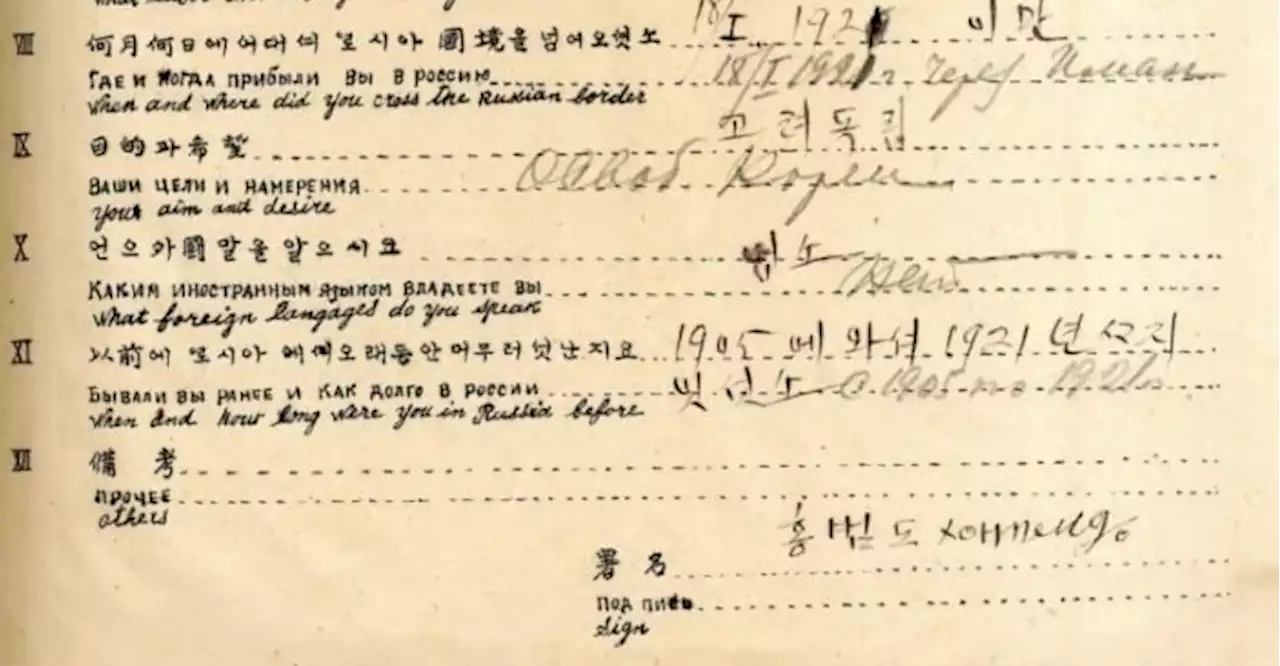 VIII 何月何日에 어대셔 로시아 國境을 넘어오셧소 18/I 1921 이만
Где и когда прибыли вы в россию 18/I 1921 г. через Иман
when and where did you cross the Russian border
IX 目的과 希望 고려독립
Ваши цели и намерения Освоб Кореи
your aim and desire
X 언으 外國말을 알으시요 업소
Каким иностранным языком владеете вы Нет
what foreign langages do you speak
XI 以前에 로시아에 오래동안 머무러 1921년
Бывали вы ранее и как долго в россии с 1905 по 1921
when and how long were you in Russia before
XII 備考
прочее
others
홍범도
署名
подпись
sign